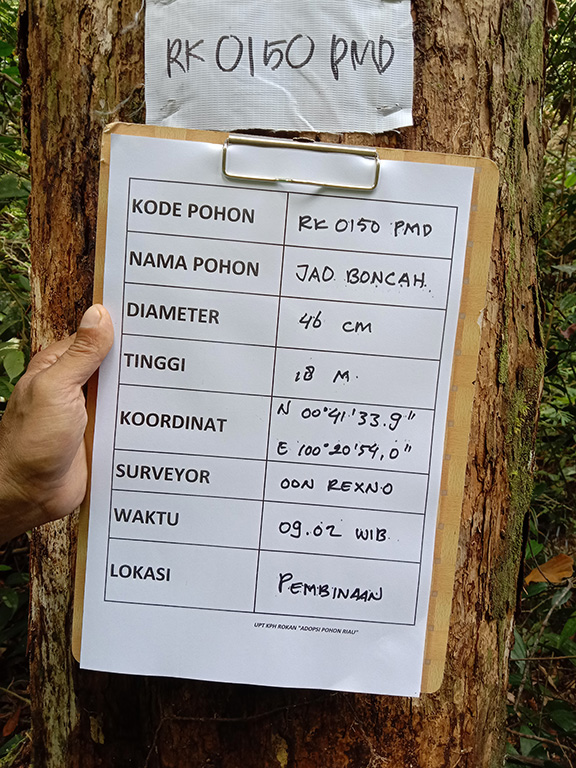 RK 0150 PMD
KODE POHON RK 0150 PMD
NAMA POHON JAO BONCAH
DIAMETER 46 CM
TINGGI 18 M
KOORDINAT N 00°41'33.9"
E 100°20'54,0"
SURVEYOR OON REXNO
WAKTU 09.02 WIB
LOKASI PEMBINAAN
UPT KPH ROKAN "ADOPSI POHON RIAU"